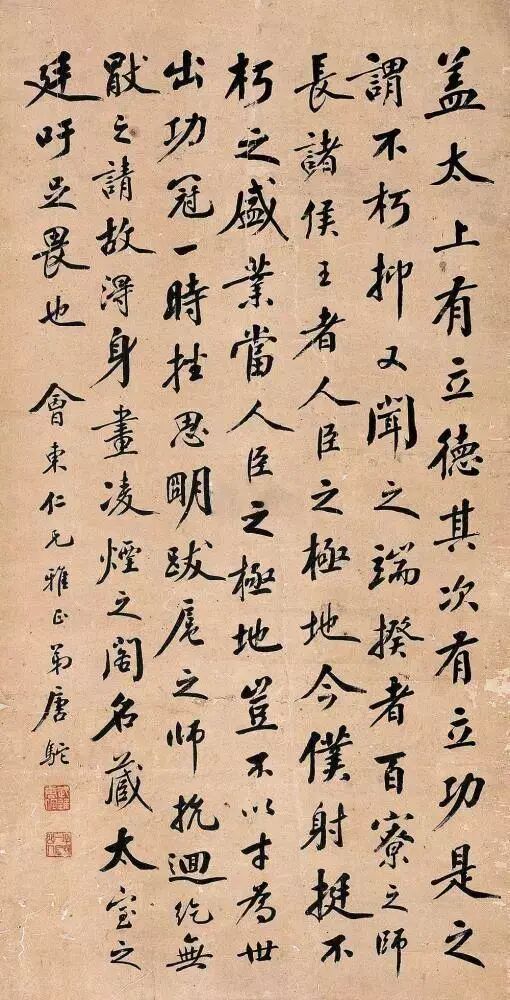 盖太上有立德其次有立功是之
謂不朽抑又聞之端揆者百寮之師
長諸侯王者人臣之極地今僕射挺不
朽之盛業當人臣之極地豈不以才為世
出功冠一時挫思明跋扈之師抗迴紇無
猒之請故得身畫凌煙之閣名藏太室之
廷吁足畏也 會東仁兄雅正 弟唐駝